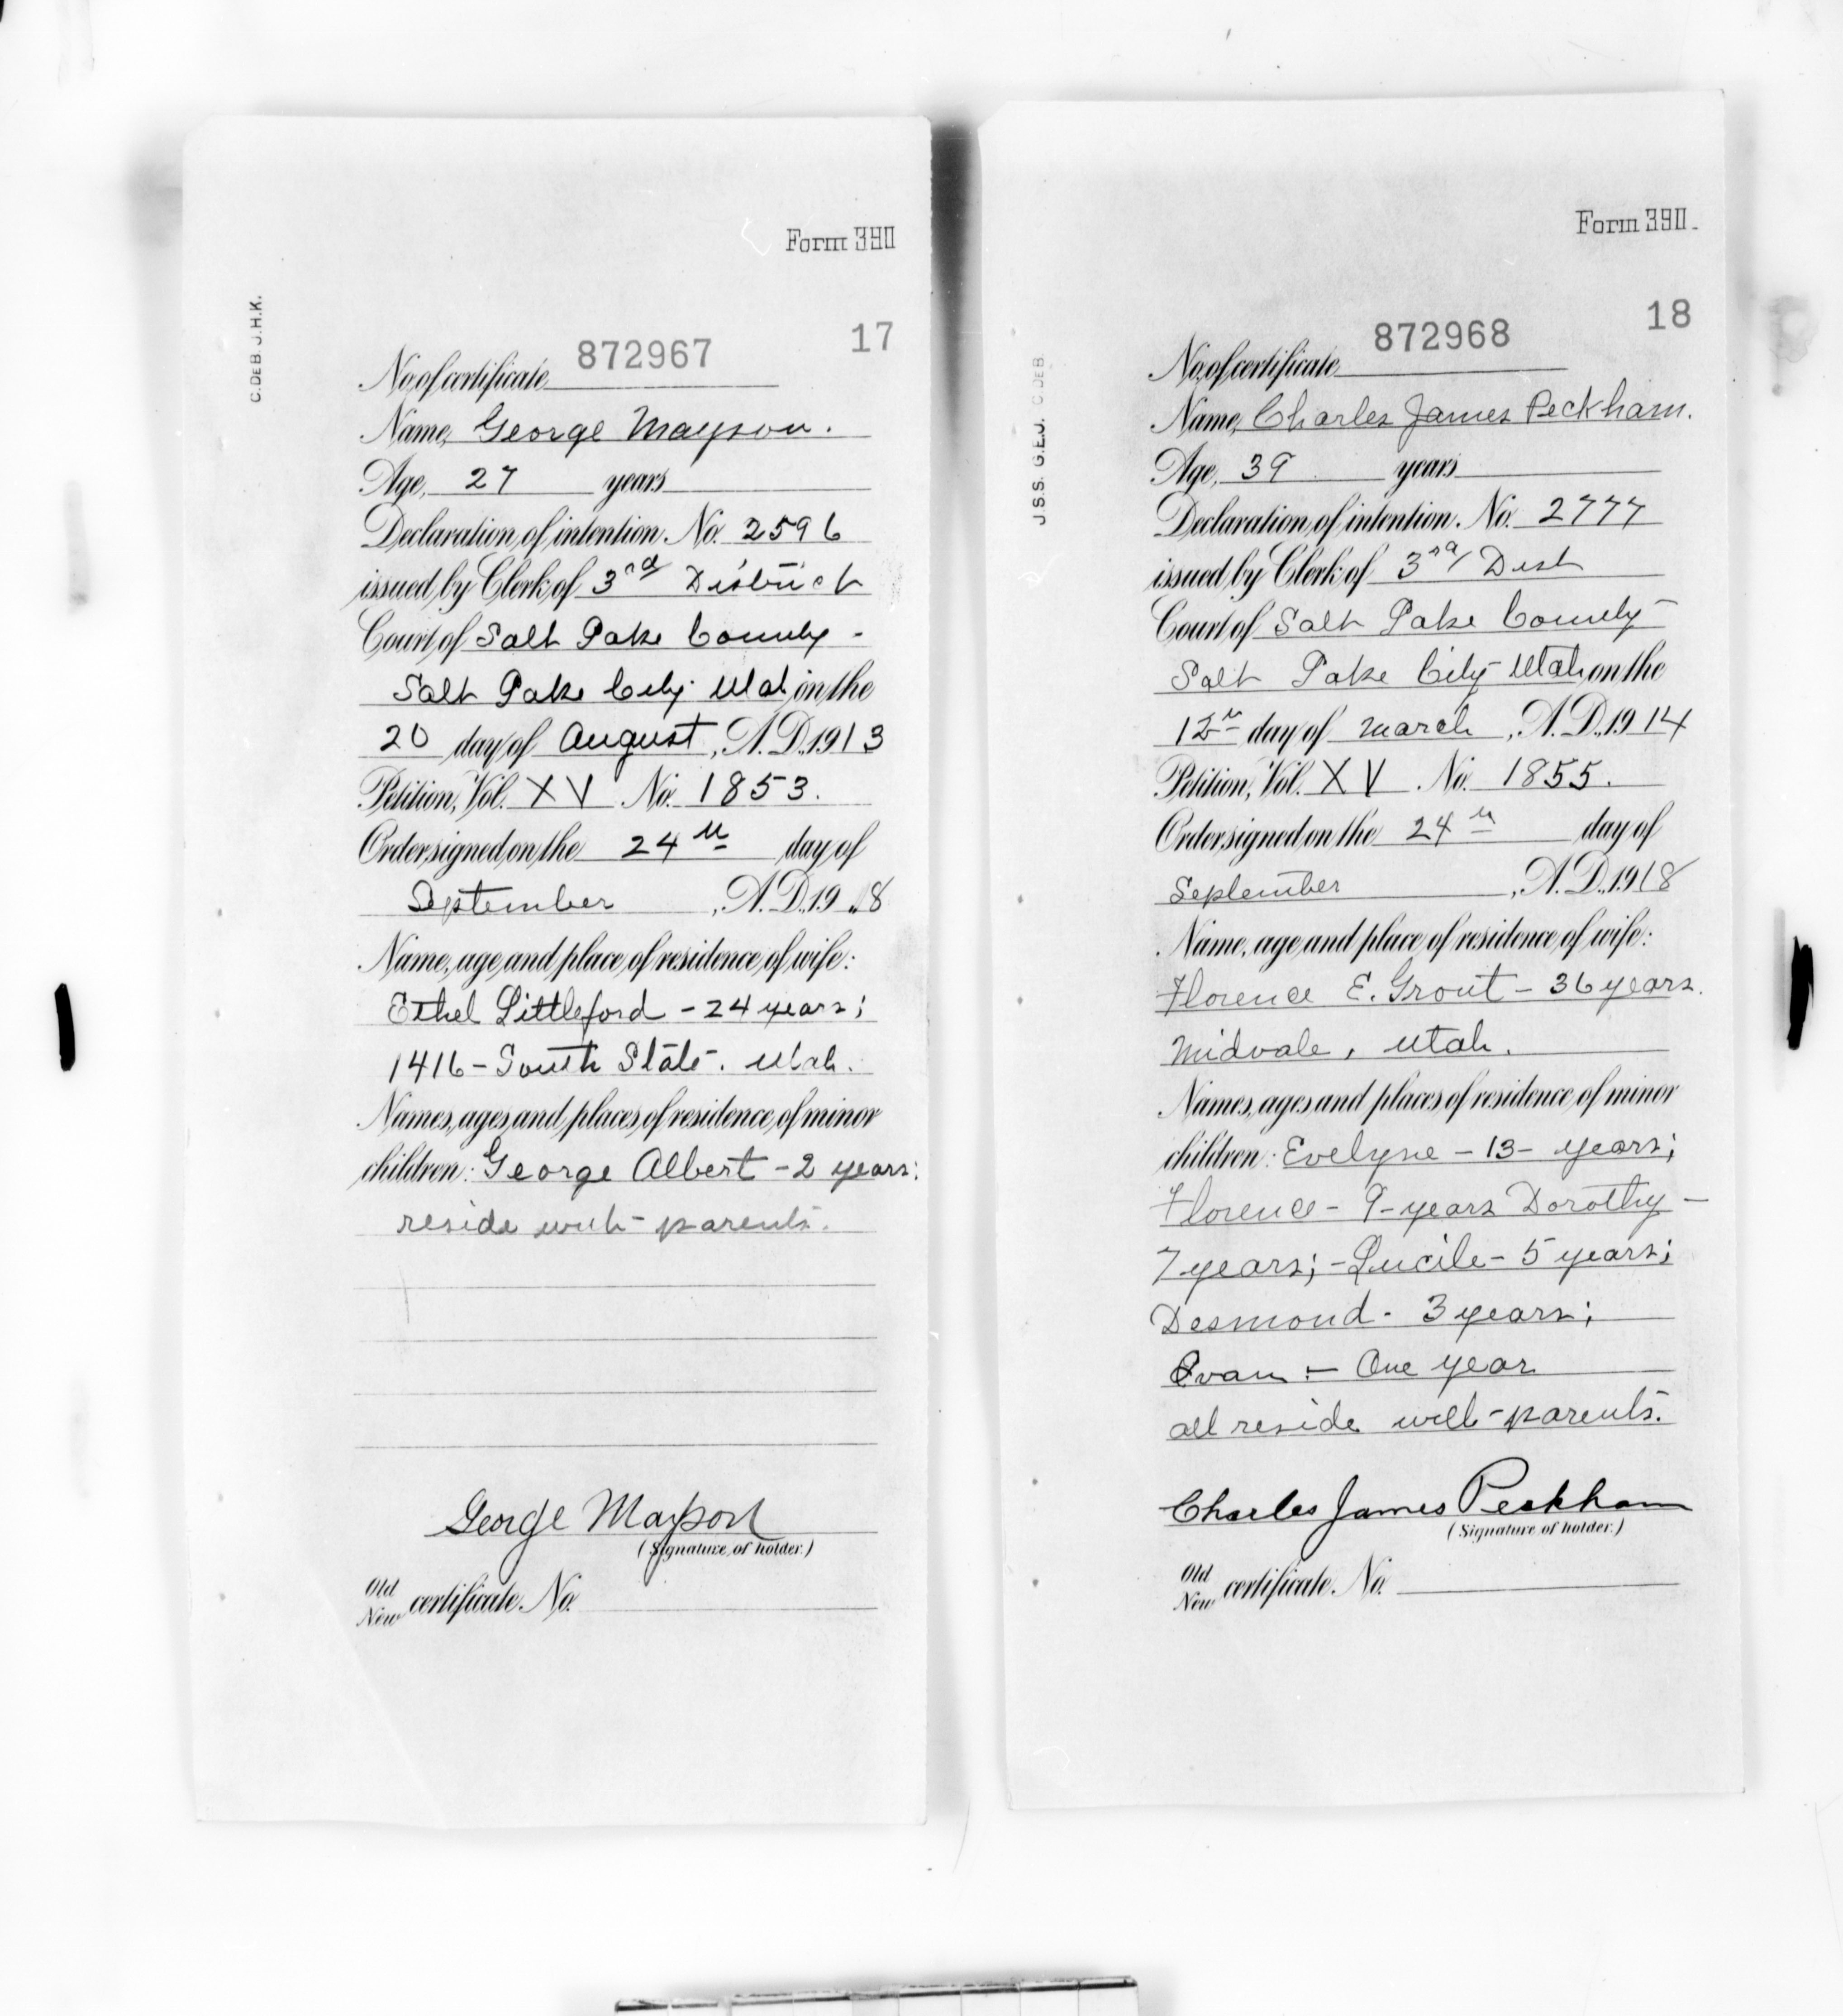 Form 390
C. DEB J.H.K.
17
No. of certificate 872967
Name, George Mayson.
Age, 27 years
Declaration of intention. No. 2596
issued by Clerk of 3rd District
Court of Salt Lake County -
Salt Lake City Utah on the
20 day of August, A.D. 1913
Petition, Vol. XV No. 1853.
Order signed on the 24th day of
September, A.D. 1918
Name, age and place of residence of wife:
Ethel Littleford - 24 years;
1416 - South State. Utah.
Names, ages and places of residence of minor
children: George Albert - 2 years;
reside with parents.
George Mayson
(Signature of holder.)
Old
New certificate No.
Form 390.
J.S.S. G.E.J. C DEB
18
No. of certificate 872968
Name, Charles James Peckham.
Age, 39 years
Declaration of intention. No. 2777
issued by Clerk of 3rd Dist
Court of Salt Lake County -
Salt Lake City - Utah on the
12th day of March, A.D. 1914
Petition, Vol. XV. No. 1855.
Order signed on the 24th day of
September, A.D. 1918
Name, age and place of residence of wife:
Florence E. Grout - 36 years.
Midvale, Utah.
Names, ages and places of residence of minor
children: Evelyne - 13 - years;
Florence - 9 - years Dorothy -
7 years; - Lucile - 5 years;
Desmond - 3 years;
- One year
all reside with - parents.
Charles James Peckham
(Signature of holder.)
Old
New certificate No.